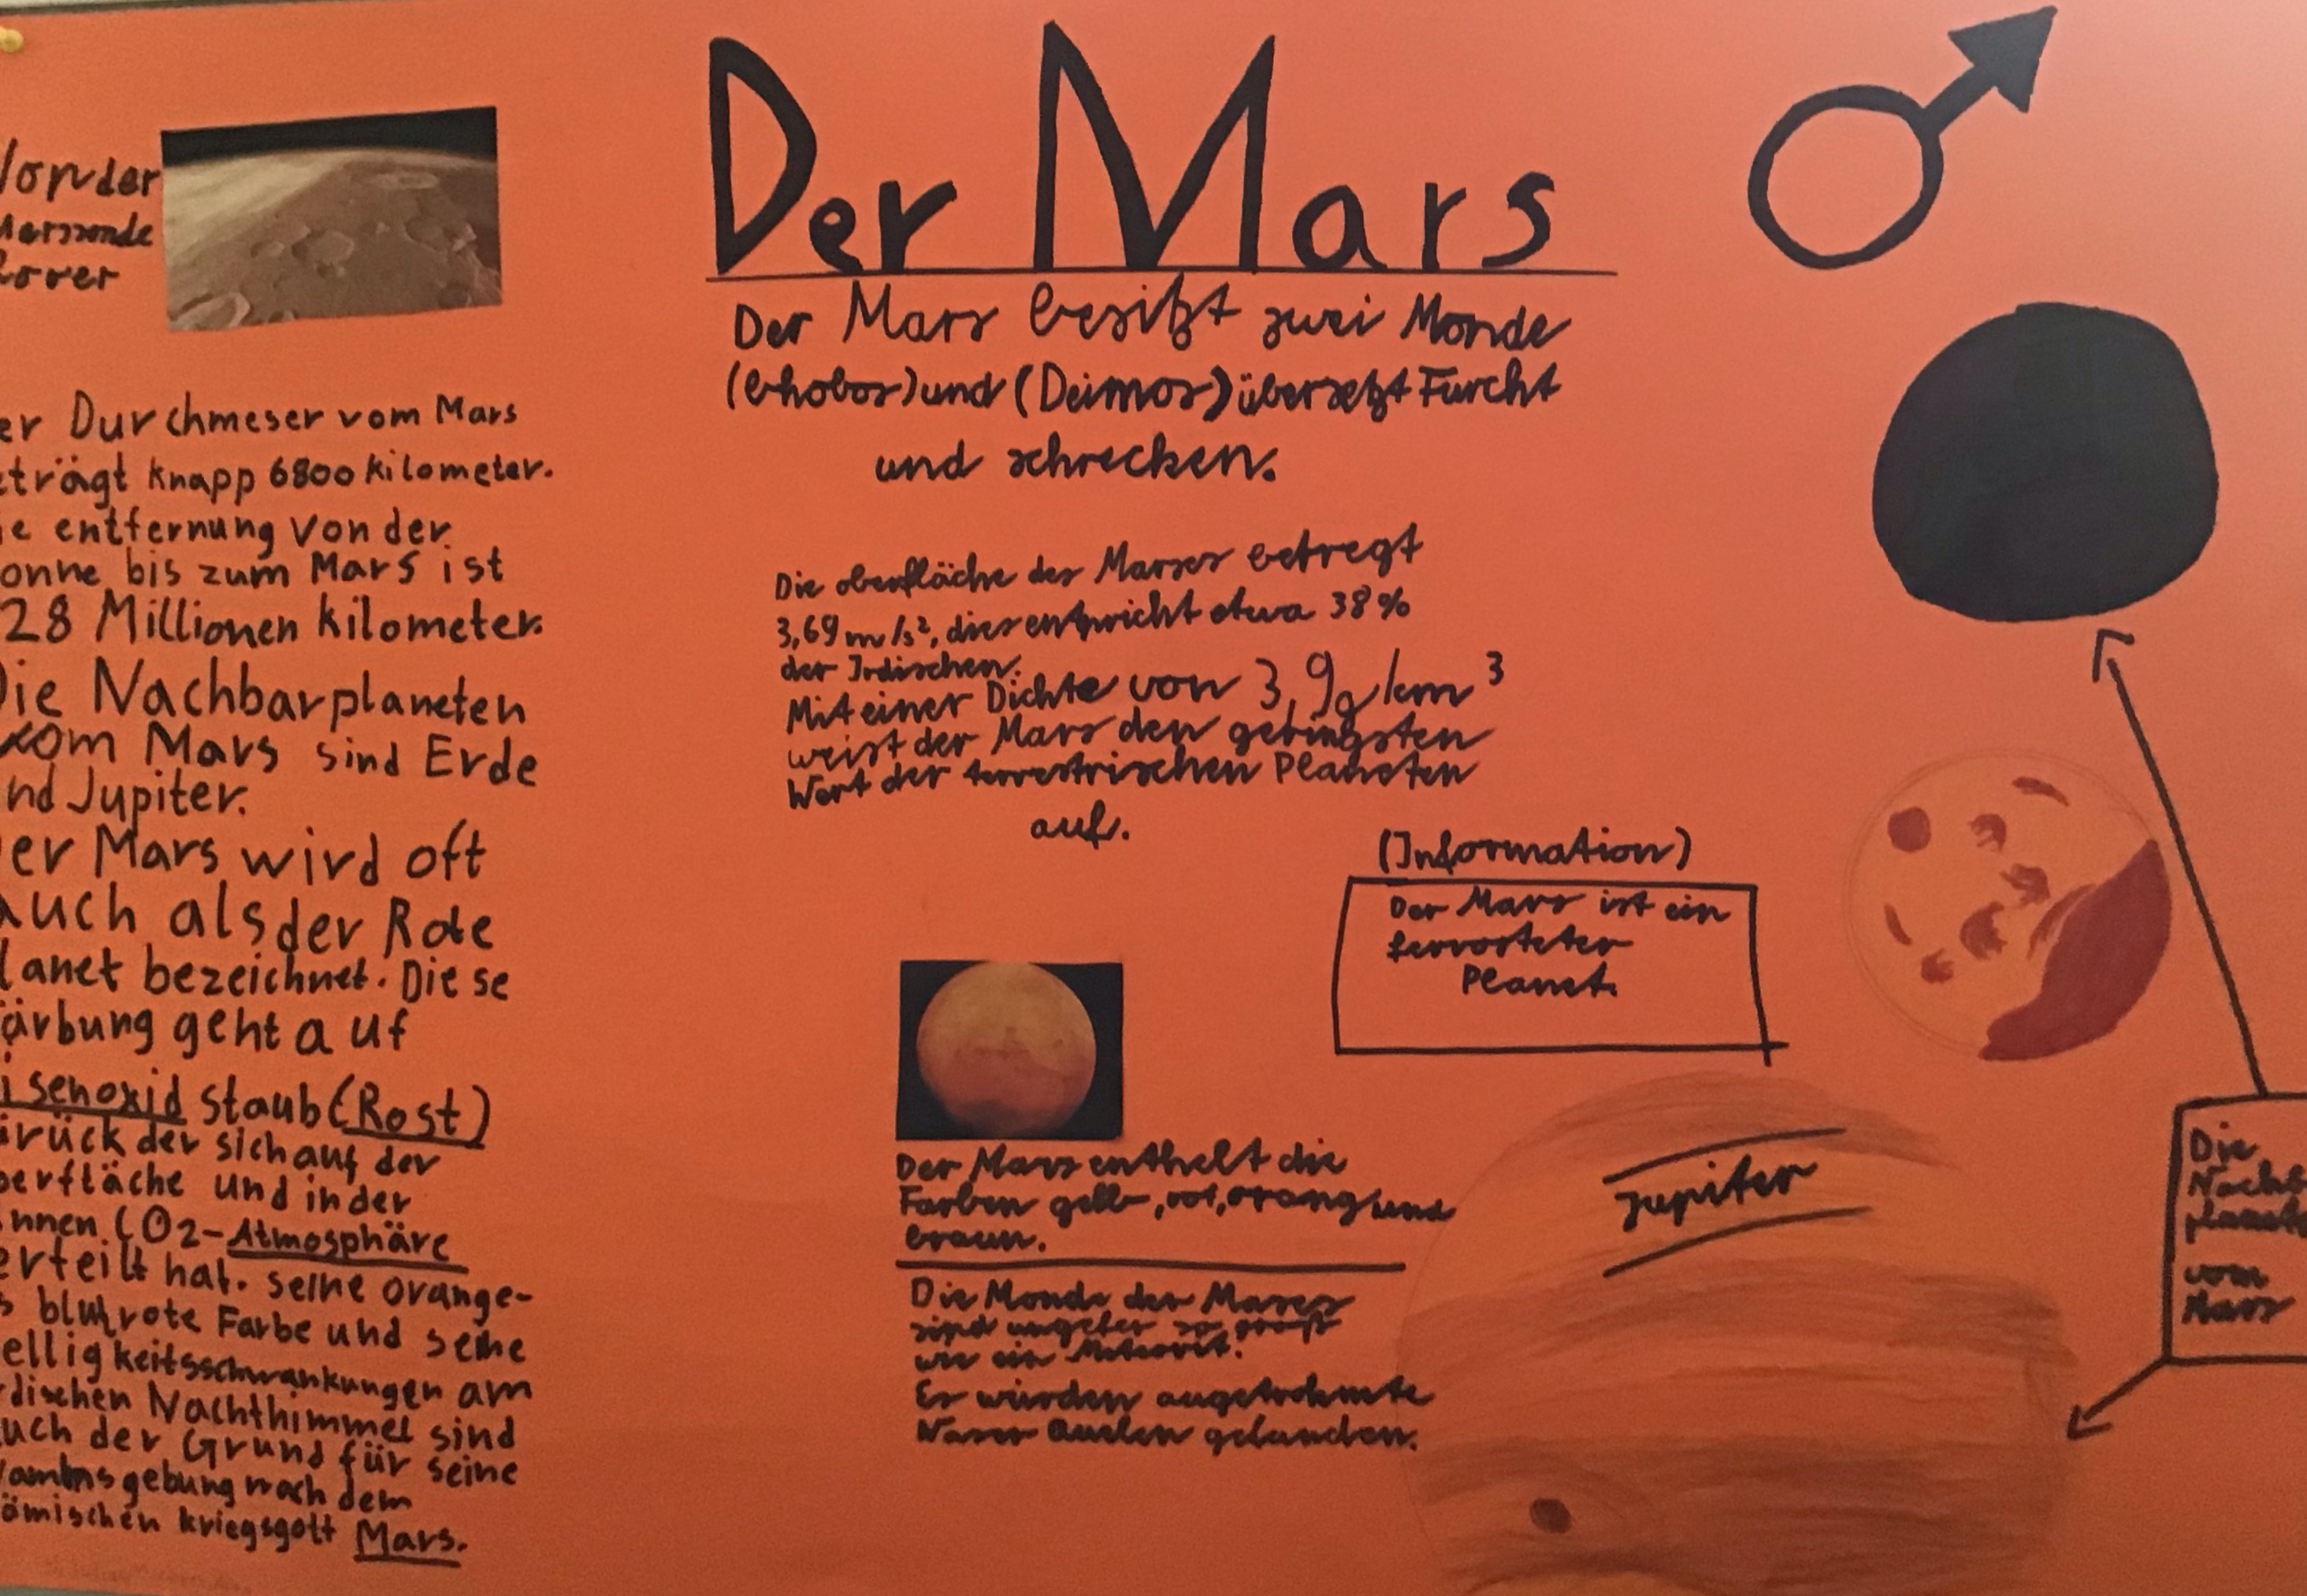 Der Mars
Von der
Marssonde
Rover
Der Mars besitzt zwei Monde
(Phobos) und (Deimos) übersetzt Furcht
und schrecken.
er Durchmeser vom Mars
eträgt knapp 6800 kilometer.
ie entfernung von der
onne bis zum Mars ist
28 Millionen kilometer.
Die Nachbarplaneten
vom Mars sind Erde
nd Jupiter.
er Mars wird oft
auch als der Rote
lanet bezeichnet. Diese
ärbung geht auf
isenoxid staub (Rost)
urück der sich auf der
berfläche und in der
ünnen CO2-Atmosphäre
erteilt hat. seine orange-
s blutrote Farbe und seine
elligkeitsschwankungen am
rdischen Nachthimmel sind
auch der Grund für seine
Namensgebung nach dem
ömischen kriegsgott Mars.
Die oberfläche des Marses betregt
3,69 m/s², dies entspricht etwa 38%
der Irdischen.
Mit einer Dichte von 3,9 g/km³
weist der Mars den geringsten
Wert der terrestrischen Planeten
auf.
(Information)
Der Mars ist ein
ferrosteter
Planet.
Der Mars enthelt die
Farben gelb, rot, orang und
braun.
Die Monde des Marses
sind ungefer so groß
wie ein Meteorit.
Es wurden ausgetroknete
Waser Quelen gefunden.
Jupiter
Die
Nachb
planete
vom
Mars